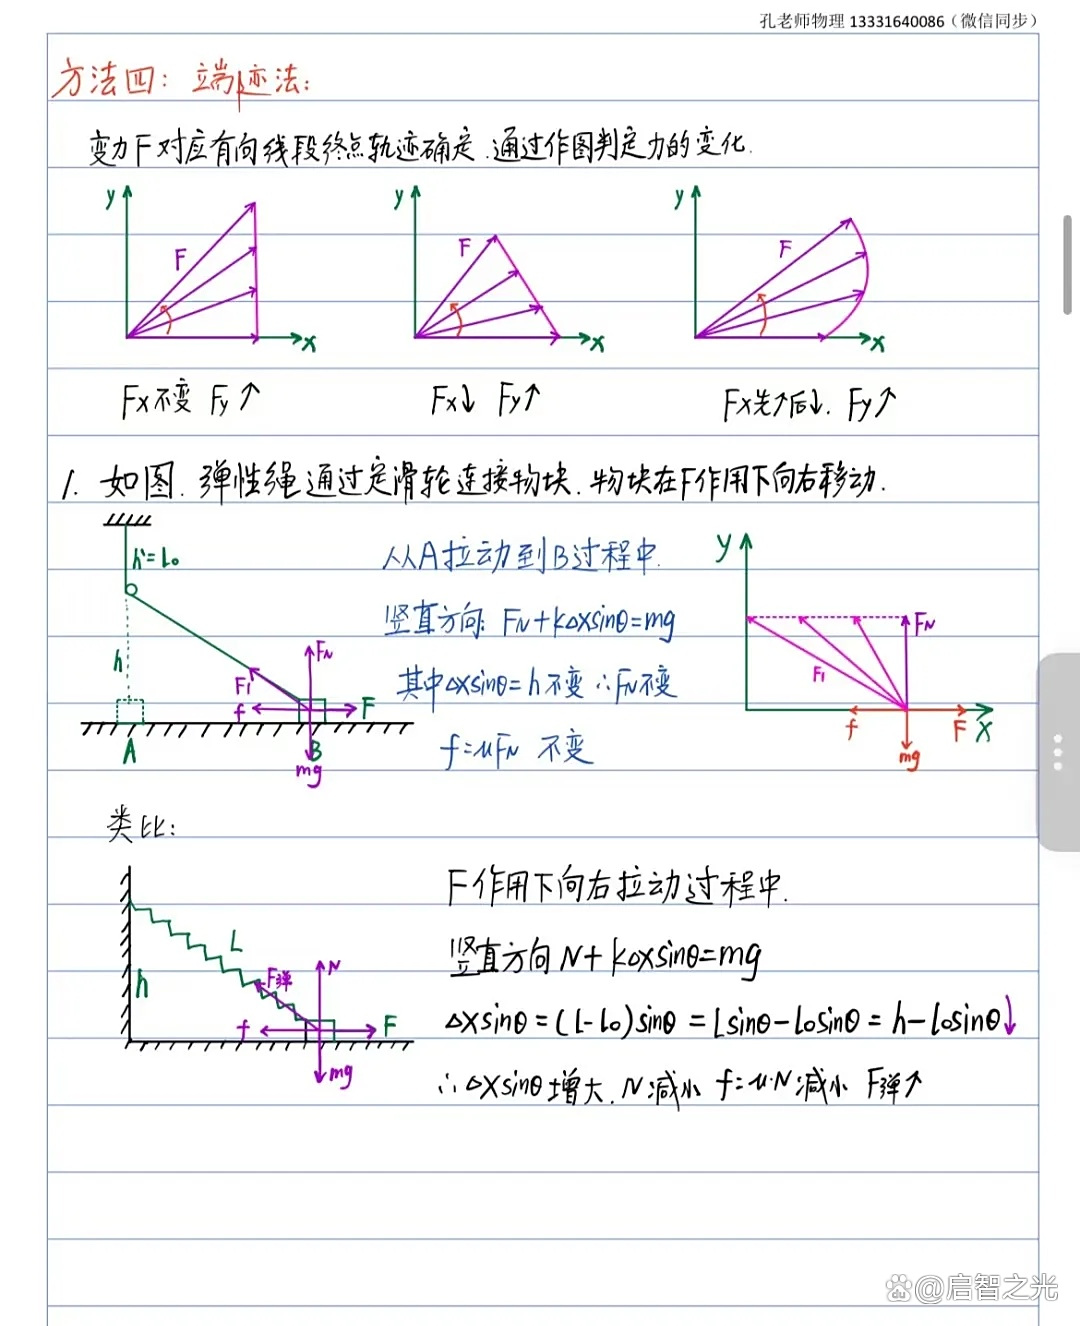 孔老师物理 13331640086（微信同步）
方法四：端迹法：
变力F对应有向线段终点轨迹确定.通过作图判定力的变化.
y F x
y F x
y F x
Fx不变 Fy↑
Fx↓ Fy↑
Fx先↑后↓. Fy↑
1. 如图.弹性绳通过定滑轮连接物块.物块在F作用下向右移动.
h'=L₀
h
F₁ FN f F
A B
mg
从A拉动到B过程中.
竖直方向: FN+kΔxsinθ=mg
其中Δxsinθ=h不变 ∴FN不变
f=μFN 不变
y
FN
F₁
f F x
mg
类比：
L
h F弹 N
f F
mg
F作用下向右拉动过程中.
竖直方向 N+kΔxsinθ=mg
Δxsinθ=(L-L₀)sinθ=Lsinθ-L₀sinθ=h-L₀sinθ↓
∴Δxsinθ增大. N减小 f=μ·N减小 F弹↑
du @启智之光